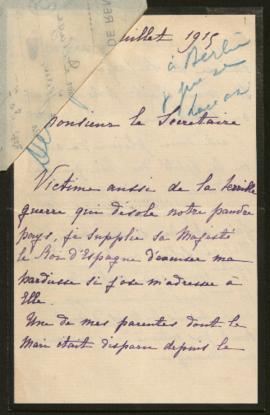 juillet 1915
à Berlin
Monsieur le Secrétaire
Victime aussi de la terrible
guerre qui désole notre pauvre
pays, je supplie sa Majesté
le Roi d'Espagne d'excuser ma
hardiesse si j'ose m'adresser à
Elle.
Une de mes parentes dont le
Mari était disparu depuis le